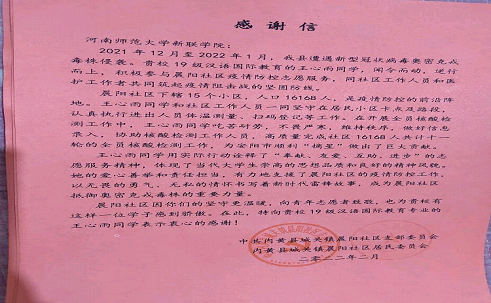 感谢信
河南师范大学新联学院：
2021年12月至2022年1月，我县遭遇新型冠状病毒奥密克戎
毒株侵袭。贵校19级汉语国际教育的王心雨同学，闻令而动，逆行
而上，积极参与晨阳社区疫情防控志愿服务，同社区工作人员和医
护工作者共同筑起疫情阻击战的坚固防线。
晨阳社区下辖15个小区，人口16168人，是疫情防控的前沿阵
地。王心雨同学和社区工作人员一同坚守在居民小区卡点及路段，
认真执行进出人员体温测量、扫码登记等工作。在开展全员核酸检
测工作中，王心雨同学吃苦耐劳，不畏严寒，维持秩序，做好信息
录入，协助核酸检测工作人员，高质量完成社区16168人共计十一
轮的全员核酸检测工作，为安阳市顺利“摘星”做出了巨大贡献。
王心雨同学用实际行动诠释了“奉献、友爱、互助、进步”的志
愿服务精神，体现了当代大学生崇高的思想品质和良好的精神风貌。
她的爱心善举和责任担当，有力地支援了晨阳社区的疫情防控工作。
以无畏的勇气、无私的情怀书写着新时代雷锋故事，成为晨阳社区
抵御奥密克戎毒株的重要力量。
晨阳社区因你们的坚守更温暖，向青年志愿者致敬，也为贵校有
这样一位学子感到骄傲。在此，特向贵校19级汉语国际教育专业的
王心雨同学表示衷心的感谢！
中共内黄县城关镇晨阳社区支部委员会
内黄县城关镇晨阳社区居民委员会
二零二二年二月